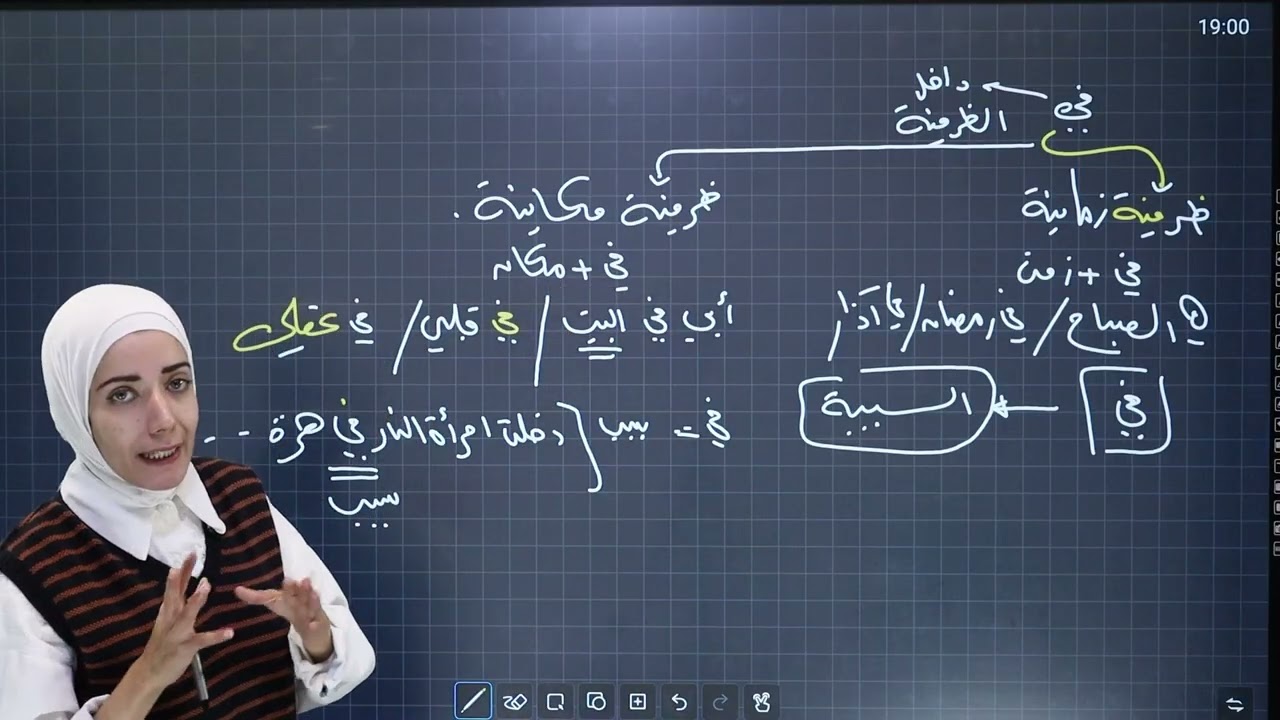 19:00
في ← داخل
الظرفية
ظرفية زمانية
ظرفية مكانية .
في + زمن
في + مكان
في الصباح / في رمضان / في آذار
أبي في البيت / في قلبي / في عقلي
في ← السببية
في = بسبب } دخلت امرأة النار في هرة - - .
سبب